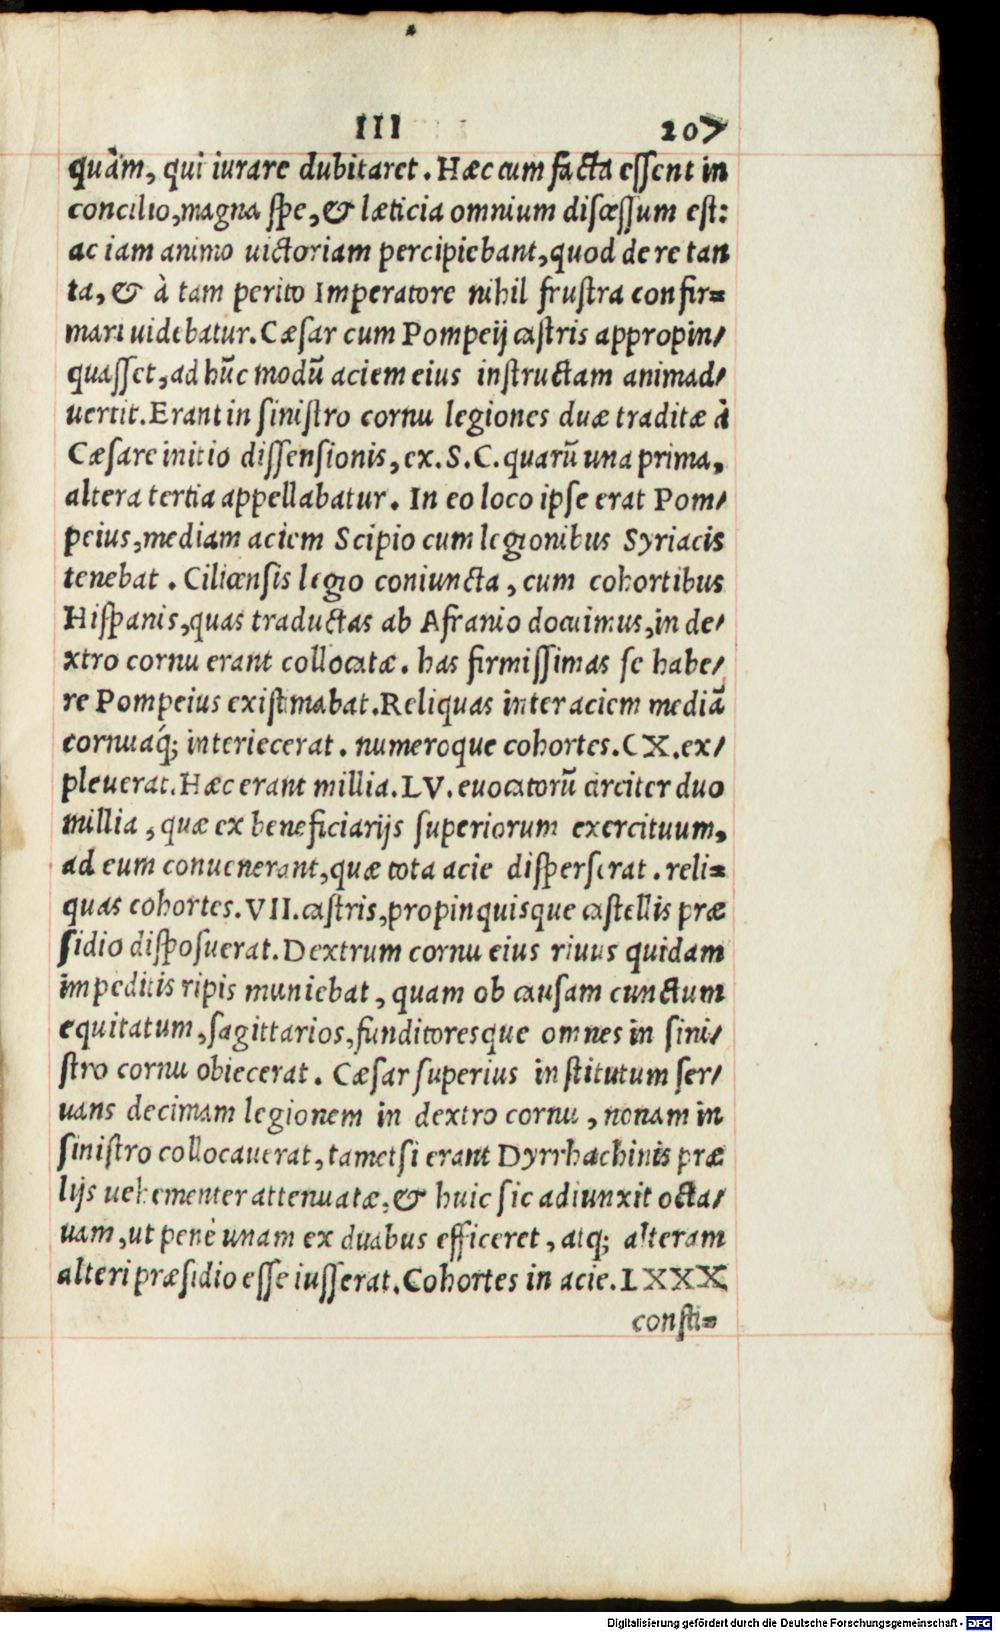 III 207
quàm, qui iurare dubitaret. Hæc cum facta essent in
concilio, magna spe, & læticia omnium discessum est:
ac iam animo uictoriam percipiebant, quod de re tan
ta, & à tam perito Imperatore nihil frustra confir=
mari uidebatur. Cæsar cum Pompeij castris appropin/
quasset, ad hũc modũ aciem eius instructam animad/
uertit. Erant in sinistro cornu legiones duæ traditæ à
Cæsare initio dissensionis, ex. S. C. quarũ una prima,
altera tertia appellabatur. In eo loco ipse erat Pom/
peius, mediam aciem Scipio cum legionibus Syriacis
tenebat. Ciliciensis legio coniuncta, cum cohortibus
Hispanis, quas traductas ab Afranio docuimus, in de/
xtro cornu erant collocatæ. has firmissimas se habe/
re Pompeius existimabat. Reliquas inter aciem mediã
cornuaq́; interiecerat. numeroque cohortes. CX. ex/
pleuerat. Hæc erant millia. LV. euocatorũ circiter duo
millia, quæ ex beneficiarijs superiorum exercituum,
ad eum conuenerant, quæ tota acie disperserat. reli=
quas cohortes. VII. castris, propinquisque castellis præ
sidio disposuerat. Dextrum cornu eius riuus quidam
impeditis ripis muniebat, quam ob causam cunctum
equitatum, sagittarios, funditoresque omnes in sini/
stro cornu obiecerat. Cæsar superius institutum ser/
uans decimam legionem in dextro cornu, nonam in
sinistro collocauerat, tametsi erant Dyrrhachinis præ
lijs uehementer attenuatæ, & huic sic adiunxit octa/
uam, ut penè unam ex duabus efficeret, atq; alteram
alteri præsidio esse iusserat. Cohortes in acie. LXXX
consti=
Digitalisierung gefördert durch die Deutsche Forschungsgemeinschaft - DFG